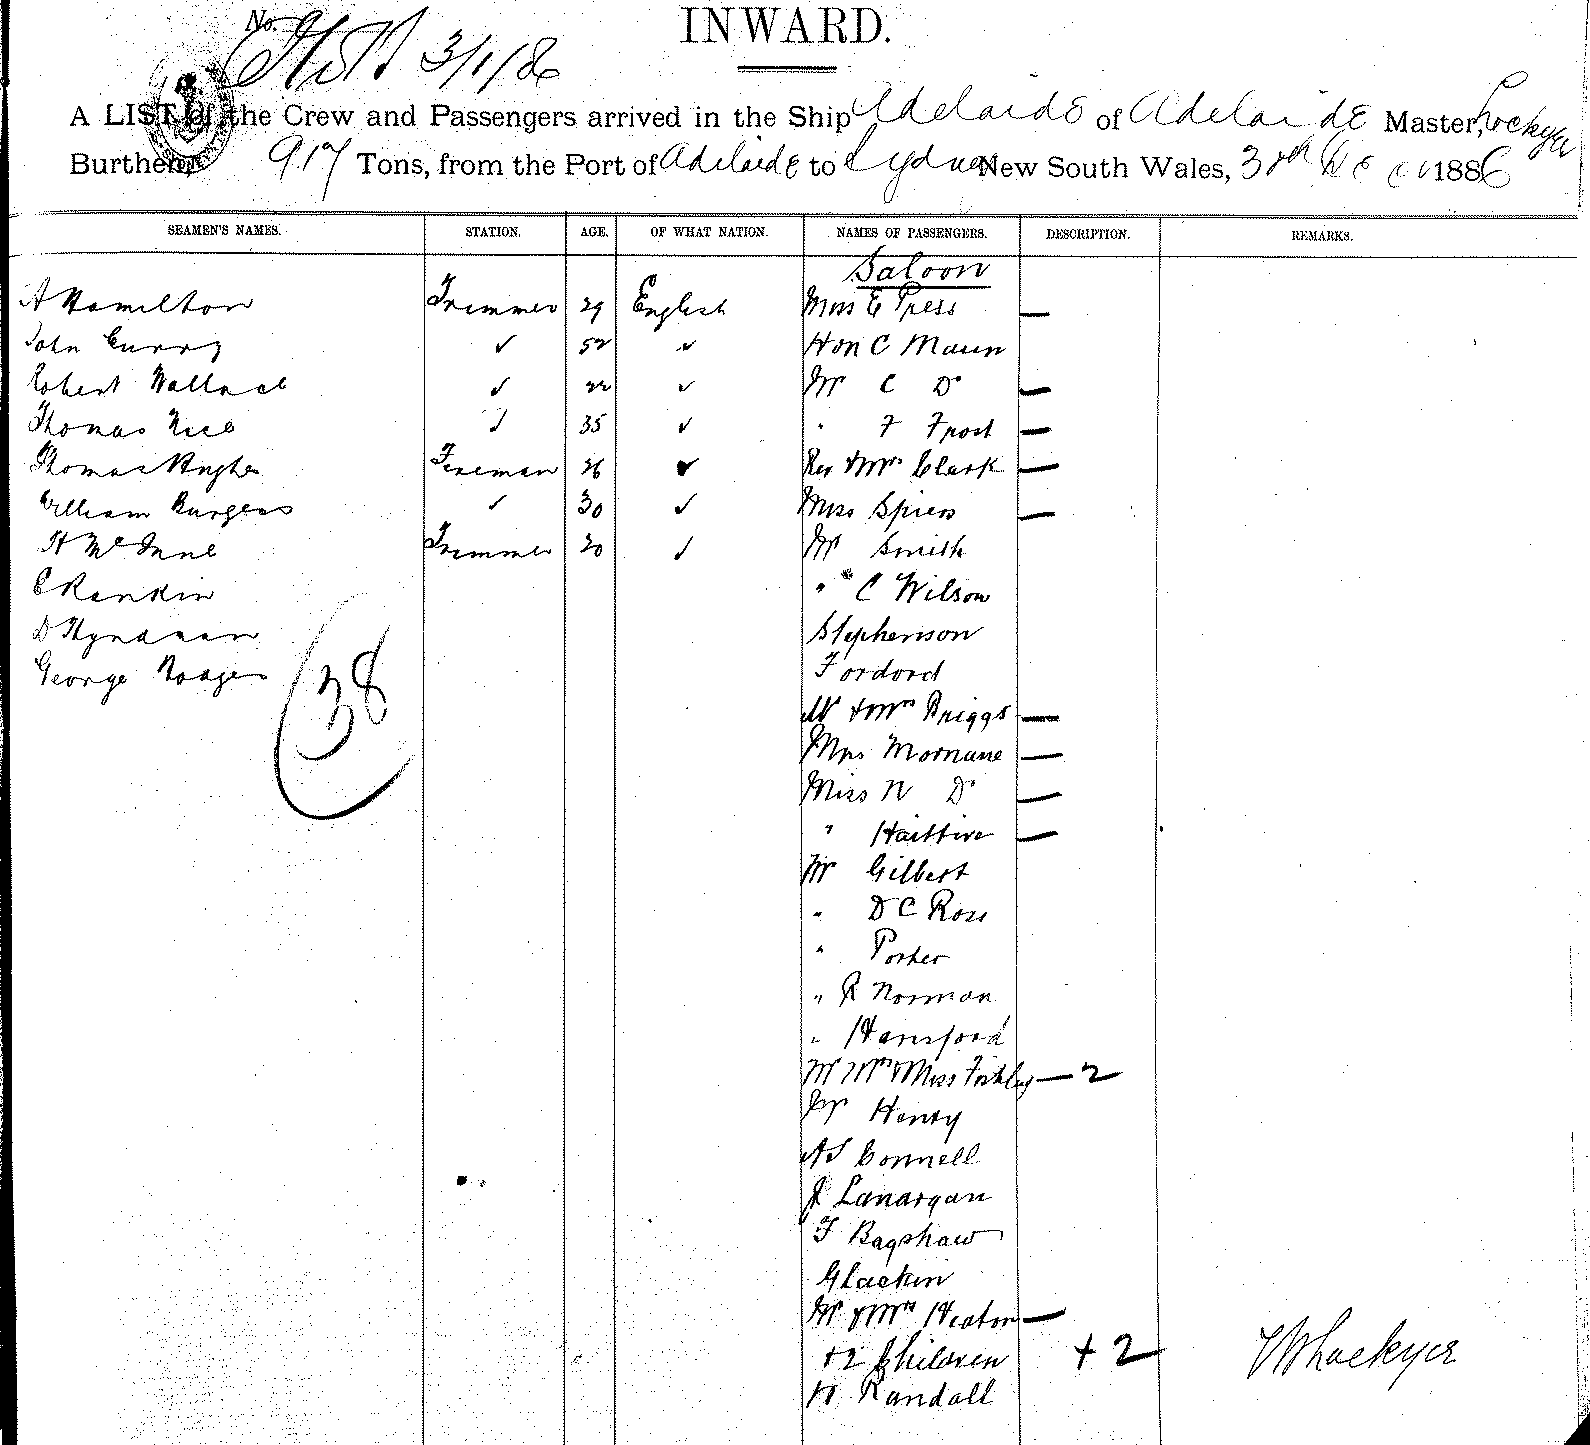 No.
3/1/86
INWARD.
A LIST of the Crew and Passengers arrived in the Ship Adelaide of Adelaide Master, Lockyer
Burthen 917 Tons, from the Port of Adelaide to Sydney New South Wales, 30th Decr 1886
SEAMEN'S NAMES. STATION. AGE. OF WHAT NATION. NAMES OF PASSENGERS. DESCRIPTION. REMARKS.
Saloon
A Hamilton Trimmer 29 English Miss E Press —
John Curry ✓ 52 ✓ Hon C Mann
Robert Wallace ✓ 22 ✓ Mr C Do —
Thomas ✓ 35 ✓ " F Frost —
Thomas Hughes Fireman 26 ✓ Rev & Mrs Clark —
William Burgess ✓ 30 ✓ Miss Spiers —
H McInne Trimmer 20 ✓ Mr Smith
C Rankin " C Wilson
D Hyndman Stephenson
George Fordord
38
Mr & Mrs Briggs —
Mrs Mornane —
Miss N Do —
" —
Mr Gilbert
" D C Ross
" Porter
" R Norman
" Hansford
Mr Mrs & Miss — 2
Mr Henry
A S Connell
J Lanargan
F Bagshaw
Glackin
Mr & Mrs Heaton —
+ 2 Children + 2
H Randall
W Lockyer